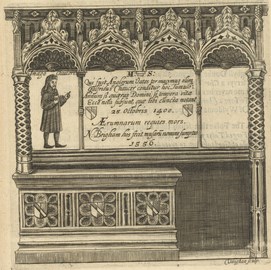 M. S.
Qui fuit Anglorum Vates ter maximus olim
Galfridus Chaucer conditur hoc Tumulo
Annum si quæras Domini, si tempora vitæ
Ecce notæ subsunt, quæ tibi cuncta notant
25 Octobris 1400.
Ærumnarum requies mors.
N. Brigham hos fecit musarum nomine sumptus
1556